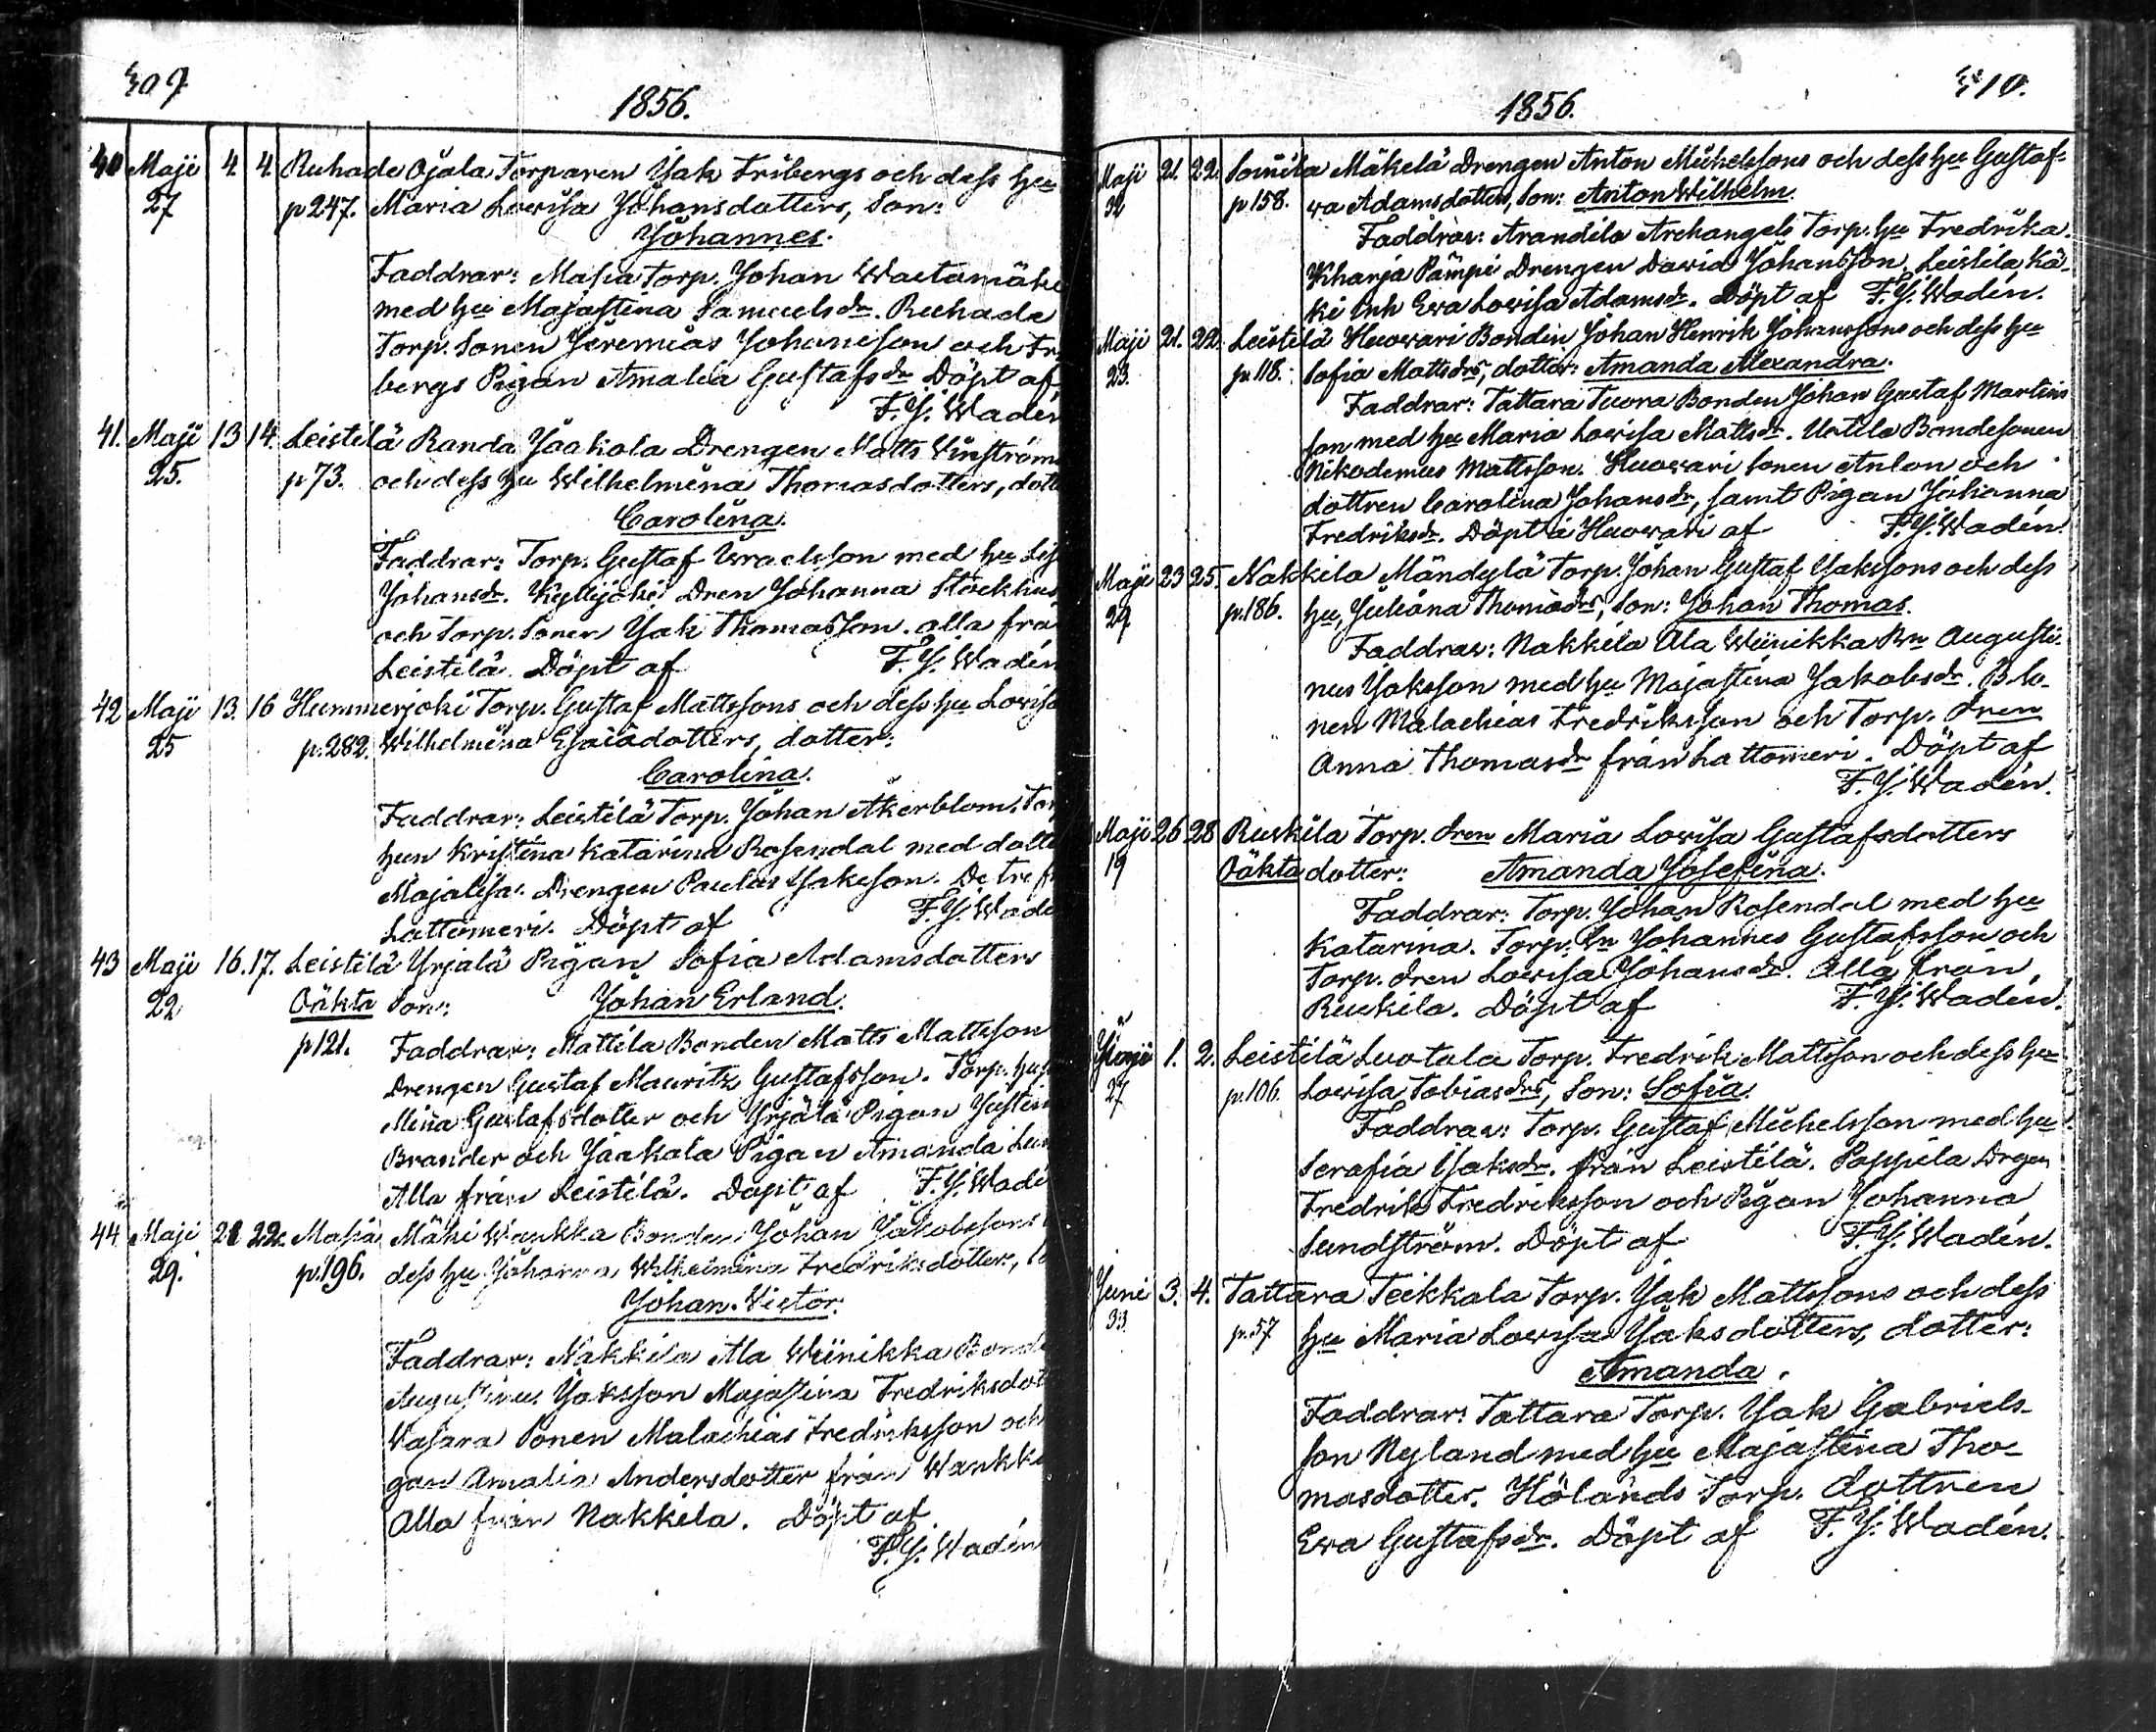 309
1856.
40 Maji 4. 4. Ruhade Ojala Torparen Isak Fribergs och dess hu
27 p 247. Maria Lovisa Johansdotters, Son:
Johannes.
Faddrar: Masia Torp. Johan
med hu Majastina Samuelsdr. Ruhade
Torp. Sonen Jeremias Johansson och Fri
bergs Pigan Amalia Gustafsdr. Döpt af
F. J. Wadén
41. Maji 13 14. Leistilä Randa Jaakola Drengen Matts Winströms
25. p 73. och dess hu Wilhelmina Thomasdotters, dott
Carolina.
Faddrar: Torp. Gustaf Israelsson med hu Lis
Johansdr. Kyllijoki Dren Johanna Stockhus
och Torp. Sonen Isak Thomasson. alla frå
Leistilä. Döpt af F. J. Wadén
42 Maji 13. 16 Hummerjoki Torp. Gustaf Mattssons och dess hu Lovisa
25 p. 282. Wilhelmina Esaiadotters, dotter:
Carolina.
Faddrar: Leistilä Torp. Johan Åkerblom. Tor
hun Kristina Katarina Rosendal med dotte
Majalisa. Drengen Paulus Isaksson. De tre fr
Lattomeri. Döpt af F. J. Wadé
43 Maji 16. 17. Leistilä Yrjälä Pigan Sofia Adamsdotters
22 Oäkta Son: Johan Erland.
p 121. Faddrar: Mattila Bonden Matts Mattsson
Drengen Gustaf Mauritz Gustafsson. Torp. hust
Mina Gustafsdotter och Yrjälä Pigan Justin
Brander och Jaakola Pigan Amanda
Alla från Leistilä. Döpt af F. J. Wadé
44 Maji 21 22. Masia Mäki Wankka Bonden Johan Jakobssons
29. p. 196. dess hu Johanna Wilhelmina Fredriksdotters,
Johan Victor.
Faddrar: Nakkila Ala Wiinikka Bonde
Augustinus Isaksson Majastina Fredriksdot
Wasara Sonen Malachias Fredriksson och
gan Amalia Andersdotter från Wankka
Alla från Nakkila. Döpt af
F. J. Wadén
310.
1856.
Maji 21. 22. Soinila Mäkelä Drengen Anton Mickelssons och dess hu Gustaf-
32 p 158. va Adamsdotters, Son: Anton Wilhelm.
Faddrar: Arandila Archangels Torp. hu Fredrika.
Kharja Pämpi Drengen David Johansson. Leistila Kä-
ki Inh Eva Lovisa Adamsdr. Döpt af F. J. Wadén.
Maji 21. 22. Leistilä Huovari Bonden Johan Henrik Johanssons och dess hu
23. p. 118. Sofia Mattsdrs, dotter: Amanda Alexandra.
Faddrar: Tattara Tuora Bonden Johan Gustaf Martins
son med hu Maria Lovisa Mattsdr. Uotila Bondesonen
Nikodemus Mattsson. Huovari Sonen Anton och
dottren Carolina Johansdr, samt Pigan Johanna
Fredriksdr. Döpt i Huovari af F. J. Wadén.
Maji 23 25. Nakkila Mändylä Torp. Johan Gustaf Isakssons och dess
29 p. 186. hu, Juliana Thomädrs, Son: Johan Thomas.
Faddrar: Nakkila Ala Wiinikka Bn Augusti-
nus Isaksson med hu Majastina Jakobsdr. B. So-
nen Malachias Fredriksson och Torp. dren
Anna Thomasdr från Lattomeri. Döpt af
F. J. Wadén.
Maji 26 28 Ruskila Torp. dren Maria Lovisa Gustafsdotters
19 Oäkta dotter: Amanda Josefina.
Faddrar: Torp. Johan Rosendal med hu
Katarina. Torp. Sn Johannes Gustafsson och
Torp. dren Lovisa Johansdr. Alla från
Ruskila. Döpt af F. J. Wadén.
Junii 1. 2. Leistilä Luotala Torp. Fredrik Mattsson och dess hu
27 p. 106. Lovisa Tobiasdrs, Son: Sofia.
Faddrar: Torp. Gustaf Mickelsson med hu
Serafia Isaksdr. från Leistilä. Pappila Drgen
Fredrik Fredriksson och Pigan Johanna
Sundström. Döpt af F. J. Wadén.
Juni 3. 4. Tattara Teikkala Torp. Isak Mattssons och dess
33 p. 57 hu Maria Lovisa Isaksdotters, dotter:
Amanda.
Faddrar: Tattara Torp. Isak Gabriels-
son Nyland med hu Majastina Tho-
masdotter. Hölands Torp. dottren
Eva Gustafsdr. Döpt af F. J. Wadén.